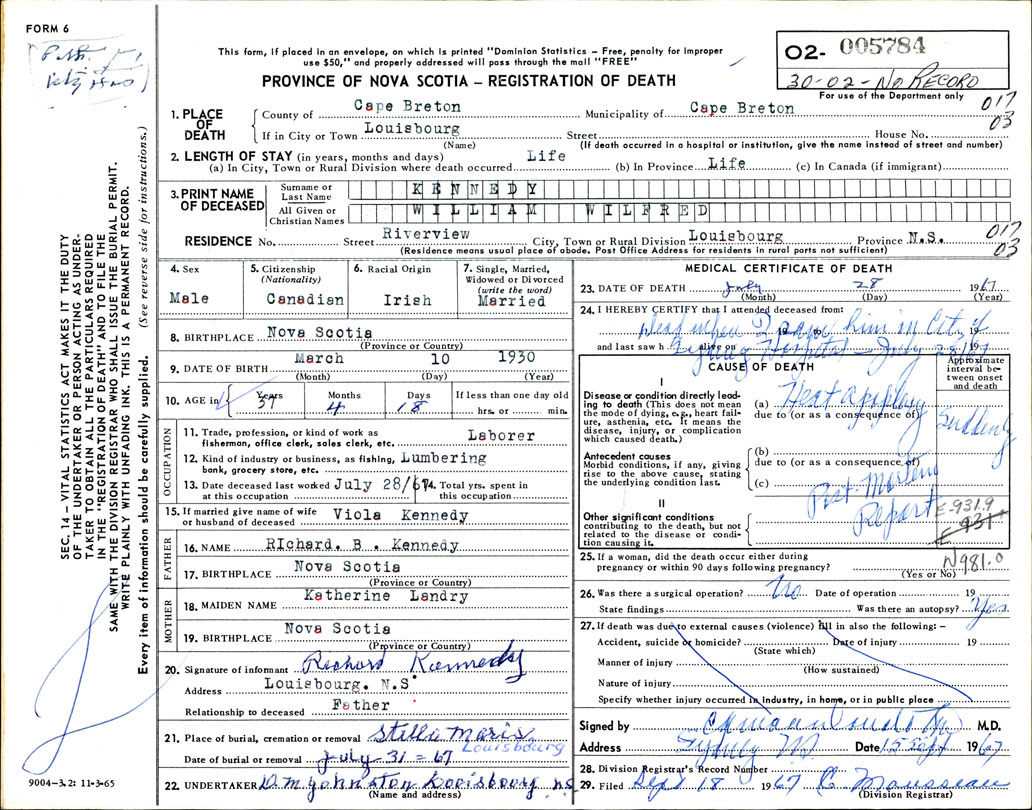 FORM 6
This form, if placed in an envelope, on which is printed "Dominion Statistics – Free, penalty for improper
use $50," and properly addressed will pass through the mail "FREE"
PROVINCE OF NOVA SCOTIA – REGISTRATION OF DEATH
02- 005784
30-02-No RECORD
For use of the Department only
017
03
1. PLACE OF DEATH
County of Cape Breton Municipality of Cape Breton
If in City or Town Louisbourg Street House No.
(Name) (If death occurred in a hospital or institution, give the name instead of street and number)
2. LENGTH OF STAY (in years, months and days)
(a) In City, Town or Rural Division where death occurred Life (b) In Province Life (c) In Canada (if immigrant)
3. PRINT NAME OF DECEASED
Surname or Last Name KENNEDY
All Given or Christian Names WILLIAM WILFRED
RESIDENCE No. Street Riverview City, Town or Rural Division Louisbourg Province N.S.
017
03
(Residence means usual place of abode. Post Office Address for residents in rural parts not sufficient)
4. Sex
Male
5. Citizenship
(Nationality)
Canadian
6. Racial Origin
Irish
7. Single, Married,
Widowed or Divorced
(write the word)
Married
8. BIRTHPLACE Nova Scotia
(Province or Country)
9. DATE OF BIRTH March 10 1930
(Month) (Day) (Year)
10. AGE in Years 37 Months 4 Days 18 If less than one day old
hrs. or min.
OCCUPATION
11. Trade, profession, or kind of work as
fisherman, office clerk, sales clerk, etc. Laborer
12. Kind of industry or business, as fishing,
bank, grocery store, etc. Lumbering
13. Date deceased last worked
at this occupation July 28/67
14. Total yrs. spent in
this occupation
15. If married give name of wife
or husband of deceased Viola Kennedy
FATHER
16. NAME RIchard. B . Kennedy
17. BIRTHPLACE Nova Scotia
(Province or Country)
MOTHER
18. MAIDEN NAME Katherine Landry
19. BIRTHPLACE Nova Scotia
(Province or Country)
20. Signature of informant Richard Kennedy
Address Louisbourg. N.S
Relationship to deceased Father
21. Place of burial, cremation or removal Stella Maris
Louisbourg
Date of burial or removal July-31=67
22. UNDERTAKER D.M Johnston Louisbourg NS
(Name and address)
MEDICAL CERTIFICATE OF DEATH
23. DATE OF DEATH July 28 1967
(Month) (Day) (Year)
24. I HEREBY CERTIFY that I attended deceased from:
19 to 19
Dead when I saw him in City of
and last saw h alive on 19
Sydney Hospital – July 28/67
CAUSE OF DEATH
Approximate
interval be-
tween onset
and death
I
Disease or condition directly lead-
ing to death (This does not mean
the mode of dying, e.g., heart fail-
ure, asthenia, etc. It means the
disease, injury, or complication
which caused death.)
(a) Heat apoplexy
due to (or as a consequence of)
Suddenly
Antecedent causes
Morbid conditions, if any, giving
rise to the above cause, stating
the underlying condition last.
(b)
due to (or as a consequence of)
(c)
Post-Mortem
Report
II
Other significant conditions
contributing to the death, but not
related to the disease or condi-
tion causing it.
E-931.9
E 931
25. If a woman, did the death occur either during
pregnancy or within 90 days following pregnancy?
(Yes or No)
N981.0
26. Was there a surgical operation? No Date of operation 19
State findings Was there an autopsy? Yes
27. If death was due to external causes (violence) fill in also the following: –
Accident, suicide or homicide? Date of injury 19
(State which)
Manner of injury
(How sustained)
Nature of injury
Specify whether injury occurred in industry, in home, or in public place
Signed by M.D.
Address Sydney NS Date 15 Sept 1967
28. Division Registrar's Record Number
29. Filed Sept 18 1967 C. Mousseau
(Division Registrar)
SEC. 14 – VITAL STATISTICS ACT MAKES IT THE DUTY
OF THE UNDERTAKER OR PERSON ACTING AS UNDER-
TAKER TO OBTAIN ALL THE PARTICULARS REQUIRED
IN THE "REGISTRATION OF DEATH" AND TO FILE THE
SAME WITH THE DIVISION REGISTRAR WHO SHALL ISSUE THE BURIAL PERMIT.
WRITE PLAINLY WITH UNFADING INK. THIS IS A PERMANENT RECORD.
Every item of information should be carefully supplied. (See reverse side for instructions.)
9004-3.2: 11-3-65